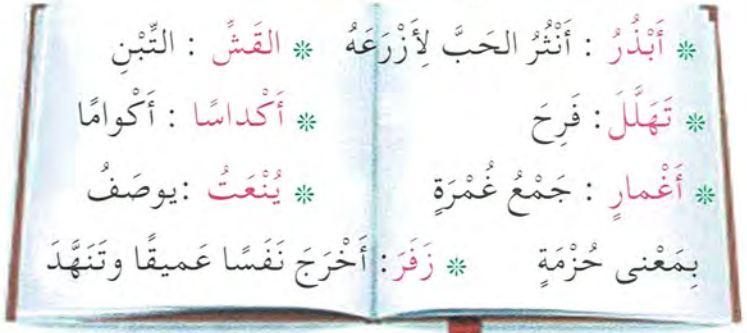 * أَبْذُرُ : أَنْثُرُ الحَبَّ لِأَزْرَعَهُ * القَشِّ : التِّبْنِ
* تَهَلَّلَ : فَرِحَ * أَكْداسًا : أَكْوامًا
* أَغْمارٍ : جَمْعُ غُمْرَةٍ * يُنْعَتُ : يوصَفُ
بِمَعْنى حُزْمَةٍ * زَفَرَ : أَخْرَجَ نَفَسًا عَميقًا وتَنَهَّدَ